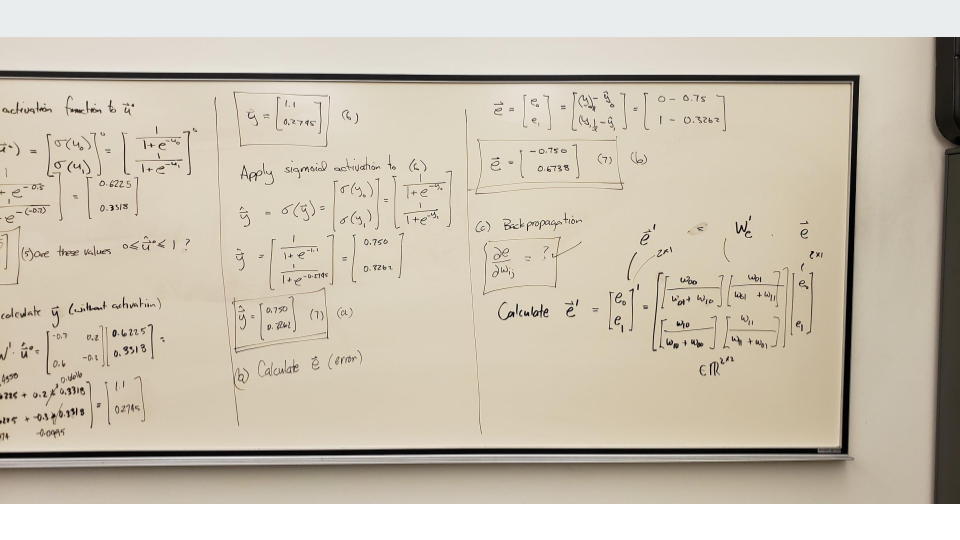 activation function to u⃗°
u⃗°) = [σ(u₀) σ(u₁)]° = [1/(1+e^-u₀) 1/(1+e^-u₁)]°
e^-0.5
e^-(-0.7)
= [0.6225 0.3318]
(5) are these values 0 ≤ û° ≤ 1 ?
calculate y⃗ (without activation)
W'· û° = [-0.7 0.2 0.6 -0.2] [0.6225 0.3318] =
225 + 0.2 * 0.3318
+ -0.3 * 0.3318
= [1.1 0.2795]
-0.0995
y⃗ = [1.1 0.2795] (6)
Apply sigmoid activation to (6)
ŷ = σ(y⃗) = [σ(y₀) σ(y₁)] = [1/(1+e^-y₀) 1/(1+e^-y₁)]
ŷ = [1/(1+e^-1.1) 1/(1+e^-0.2795)] = [0.750 0.3262]
ŷ = [0.750 0.3262] (7) (a)
(b) Calculate e⃗ (error)
e⃗ = [e₀ e₁] = [(y₀)-ŷ₀ (y₁)-ŷ₁] = [0 - 0.75 1 - 0.3262]
e⃗ = [-0.750 0.6738] (7) (b)
(c) Backpropagation
∂e/∂w_ij = ?
e⃗' = W'e . e⃗
2x1 2x1
Calculate e⃗' = [e₀ e₁]' = [w₀₀/(w₀₀+w₁₀) w₀₁/(w₀₁+w₁₁) w₁₀/(w₁₀+w₀₀) w₁₁/(w₁₁+w₀₁)] [e₀ e₁]
∈ℝ^2x2